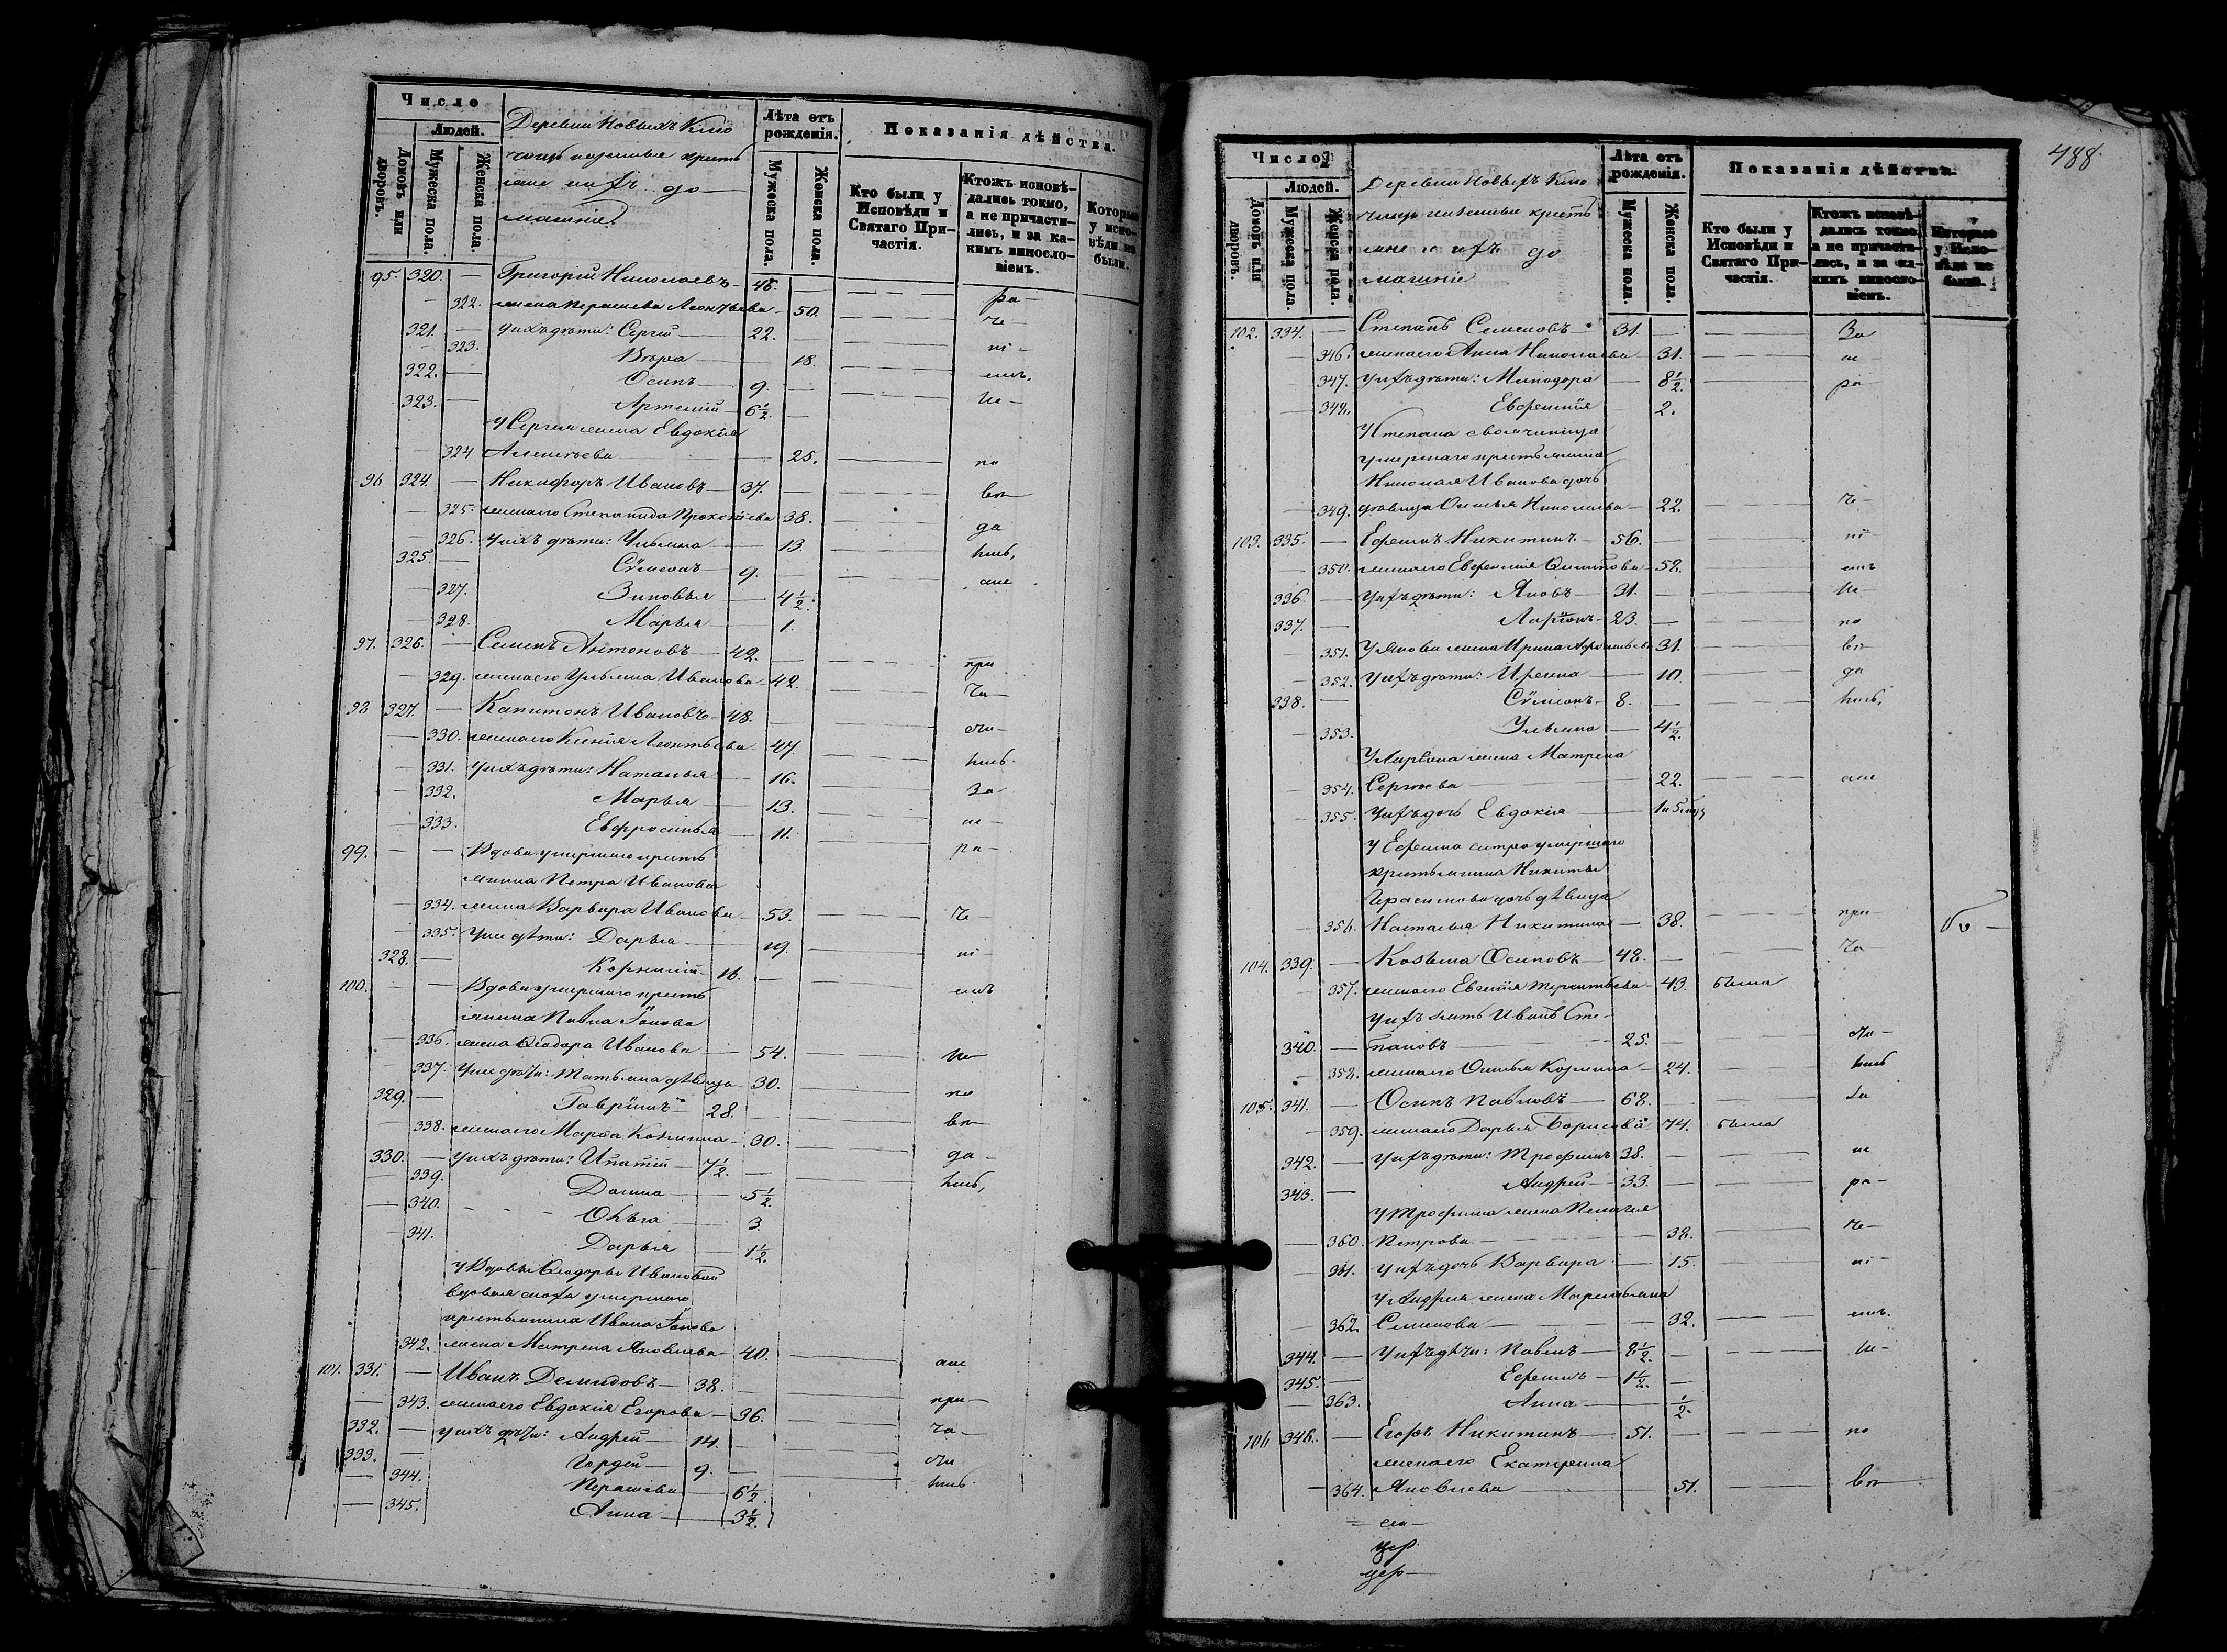 Число
Людей.
Домовъ или дворовъ.
Мужеска пола.
Женска пола.
Деревни Новыхъ Клю
чищъ крестья
не и ихъ до
машніе
Лѣта отъ рожденія.
Мужеска пола.
Женска пола.
Показанія дѣйства.
Кто были у Исповѣди и Святаго Причастія.
Ктожъ исповѣдались токмо, а не причастились, и за какимъ винословіемъ.
Которые у исповѣди не были.
95. 320. — Григорій Николаевъ — 48. ра—
322. жена Парасковья Леонтьева — 50. че—
321. — у ихъ дѣти: Сергій — 22. ні—
323. Вѣра — 18. емъ.
322. — Осипъ — 9. не—
323. — Артемій — 6½.
у Сергія жена Евдокія
324 Алексѣева — 25. по
96 324. — Никифоръ Ивановъ — 37. вѣ
325. жена его Степанида Прокопіева 38. да
326. у ихъ дѣти: Ульяна — 13. лись,
325. — Сѵмеонъ — 9. ане
327. Зиновья — 4½.
328. Марья — 1.
97. 326. — Семенъ Антоновъ — 42. при
329. жена его Ульяна Иванова — 42. ча—
98 327. — Капитонъ Ивановъ — 48. сти—
330. жена его Ксенія Леонтьева 47. лись.
331. у ихъ дѣти: Наталья — 16. За
332. Марья — 13. не—
333. Евфросинья — 11. ра—
99. — — Вдова умершаго кресть
янина Петра Иванова
334. жена Варвара Иванова — 53. че—
335. у нея дѣти: Дарья — 19. ні—
328. — Корнилій — 16. емъ
100. — — Вдова умершаго кресть
янина Павла Іонова
336. жена Ѳеодора Иванова — 54. не
337. у нея дѣти: Татьяна дѣвица — 30. по
329. — Гавріилъ — 28. вѣ
338. жена его Марѳа Козмина — 30. да—
330. — у ихъ дѣти: Ипатій — 7½. лись,
339. Домна — 5½.
340. Ольга — 3
341. Дарья — 1½.
у Вдовы Ѳеодоры Ивановой
вдовая сноха умершаго
крестьянина Ивана Іонова
342. жена Матрена Яковлева — 40. ане
101. 331. — Иванъ Демидовъ — 38. при—
343. жена его Евдокія Егорова — 36. ча—
332. — у ихъ дѣти: Андрей — 14. сти
333. — Гордій — 9. лись.
344. Парасковья — 6½.
345. Анна — 3½.
488.
Число
Людей.
Домовъ или дворовъ.
Мужеска пола.
Женска пола.
Деревни Новыхъ Клю
чищъ крестья
не и ихъ до
машніе
Лѣта отъ рожденія.
Мужеска пола.
Женска пола.
Показанія дѣйства.
Кто были у Исповѣди и Святаго Причастія.
Ктожъ исповѣдались токмо а не причастились, и за какимъ винословіемъ.
Которые у Исповѣди не были.
102. 334. — Степанъ Семеновъ — 31. За
346. жена его Анна Николаева 31. не
347. у ихъ дѣти: Минодора — 8½. ра
348. Евфимія — 2.
У Степана своячиница
умершаго крестьянина
Николая Иванова дочь
349. дѣвица Николаева — 22. че—
103. 335. — Ефимъ Никитинъ — 56. ні—
350. жена его Евфимія 52. емъ
336. — У ихъ дѣти: Яковъ — 31. не—
337. — Ларіонъ — 23. по
351. У Якова жена Ирина 31. вѣ
352. у ихъ дѣти: — 10. да
338. — Сѵмеонъ — 8. лись,
353. Ульяна — 4½.
У Ларіона жена Матрена
354. Сергѣева — 22. ане
355. у ихъ дочь Евдокія — 1 и 5 мѣс
У Ефима сестра умершаго
крестьянина Никиты
Герасимова дочь дѣвица
356. Наталья Никитина — 38. при—
104. 339. — Козьма Осиповъ — 48. ча—
357. жена его Евгенія Терентьева — 43. была
у ихъ зять Иванъ Сте-
340. — пановъ — 25. сти—
358. жена его Козмина — 24. лись
105. 341. — Осипъ Павловъ — 68. За
359. жена его Дарья Борисова 74. была
342. — у ихъ дѣти: Трофимъ 38. не
343. — Андрей — 33. ра—
у Трофима жена Пелагія
360. Петрова — 38. че—
361. у ихъ дочь Варвара — 15. ні—
у Андрея жена Маремьяна
362. Семенова — 32. емъ.
344. — у ихъ дѣти: Павелъ — 8½. не—
345. — Ефимъ — 1½.
363. Анна — ½.
106 346. — Егоръ Никитинъ — 51. по
жена его Екатерина
364. Яковлева — 51. вѣ